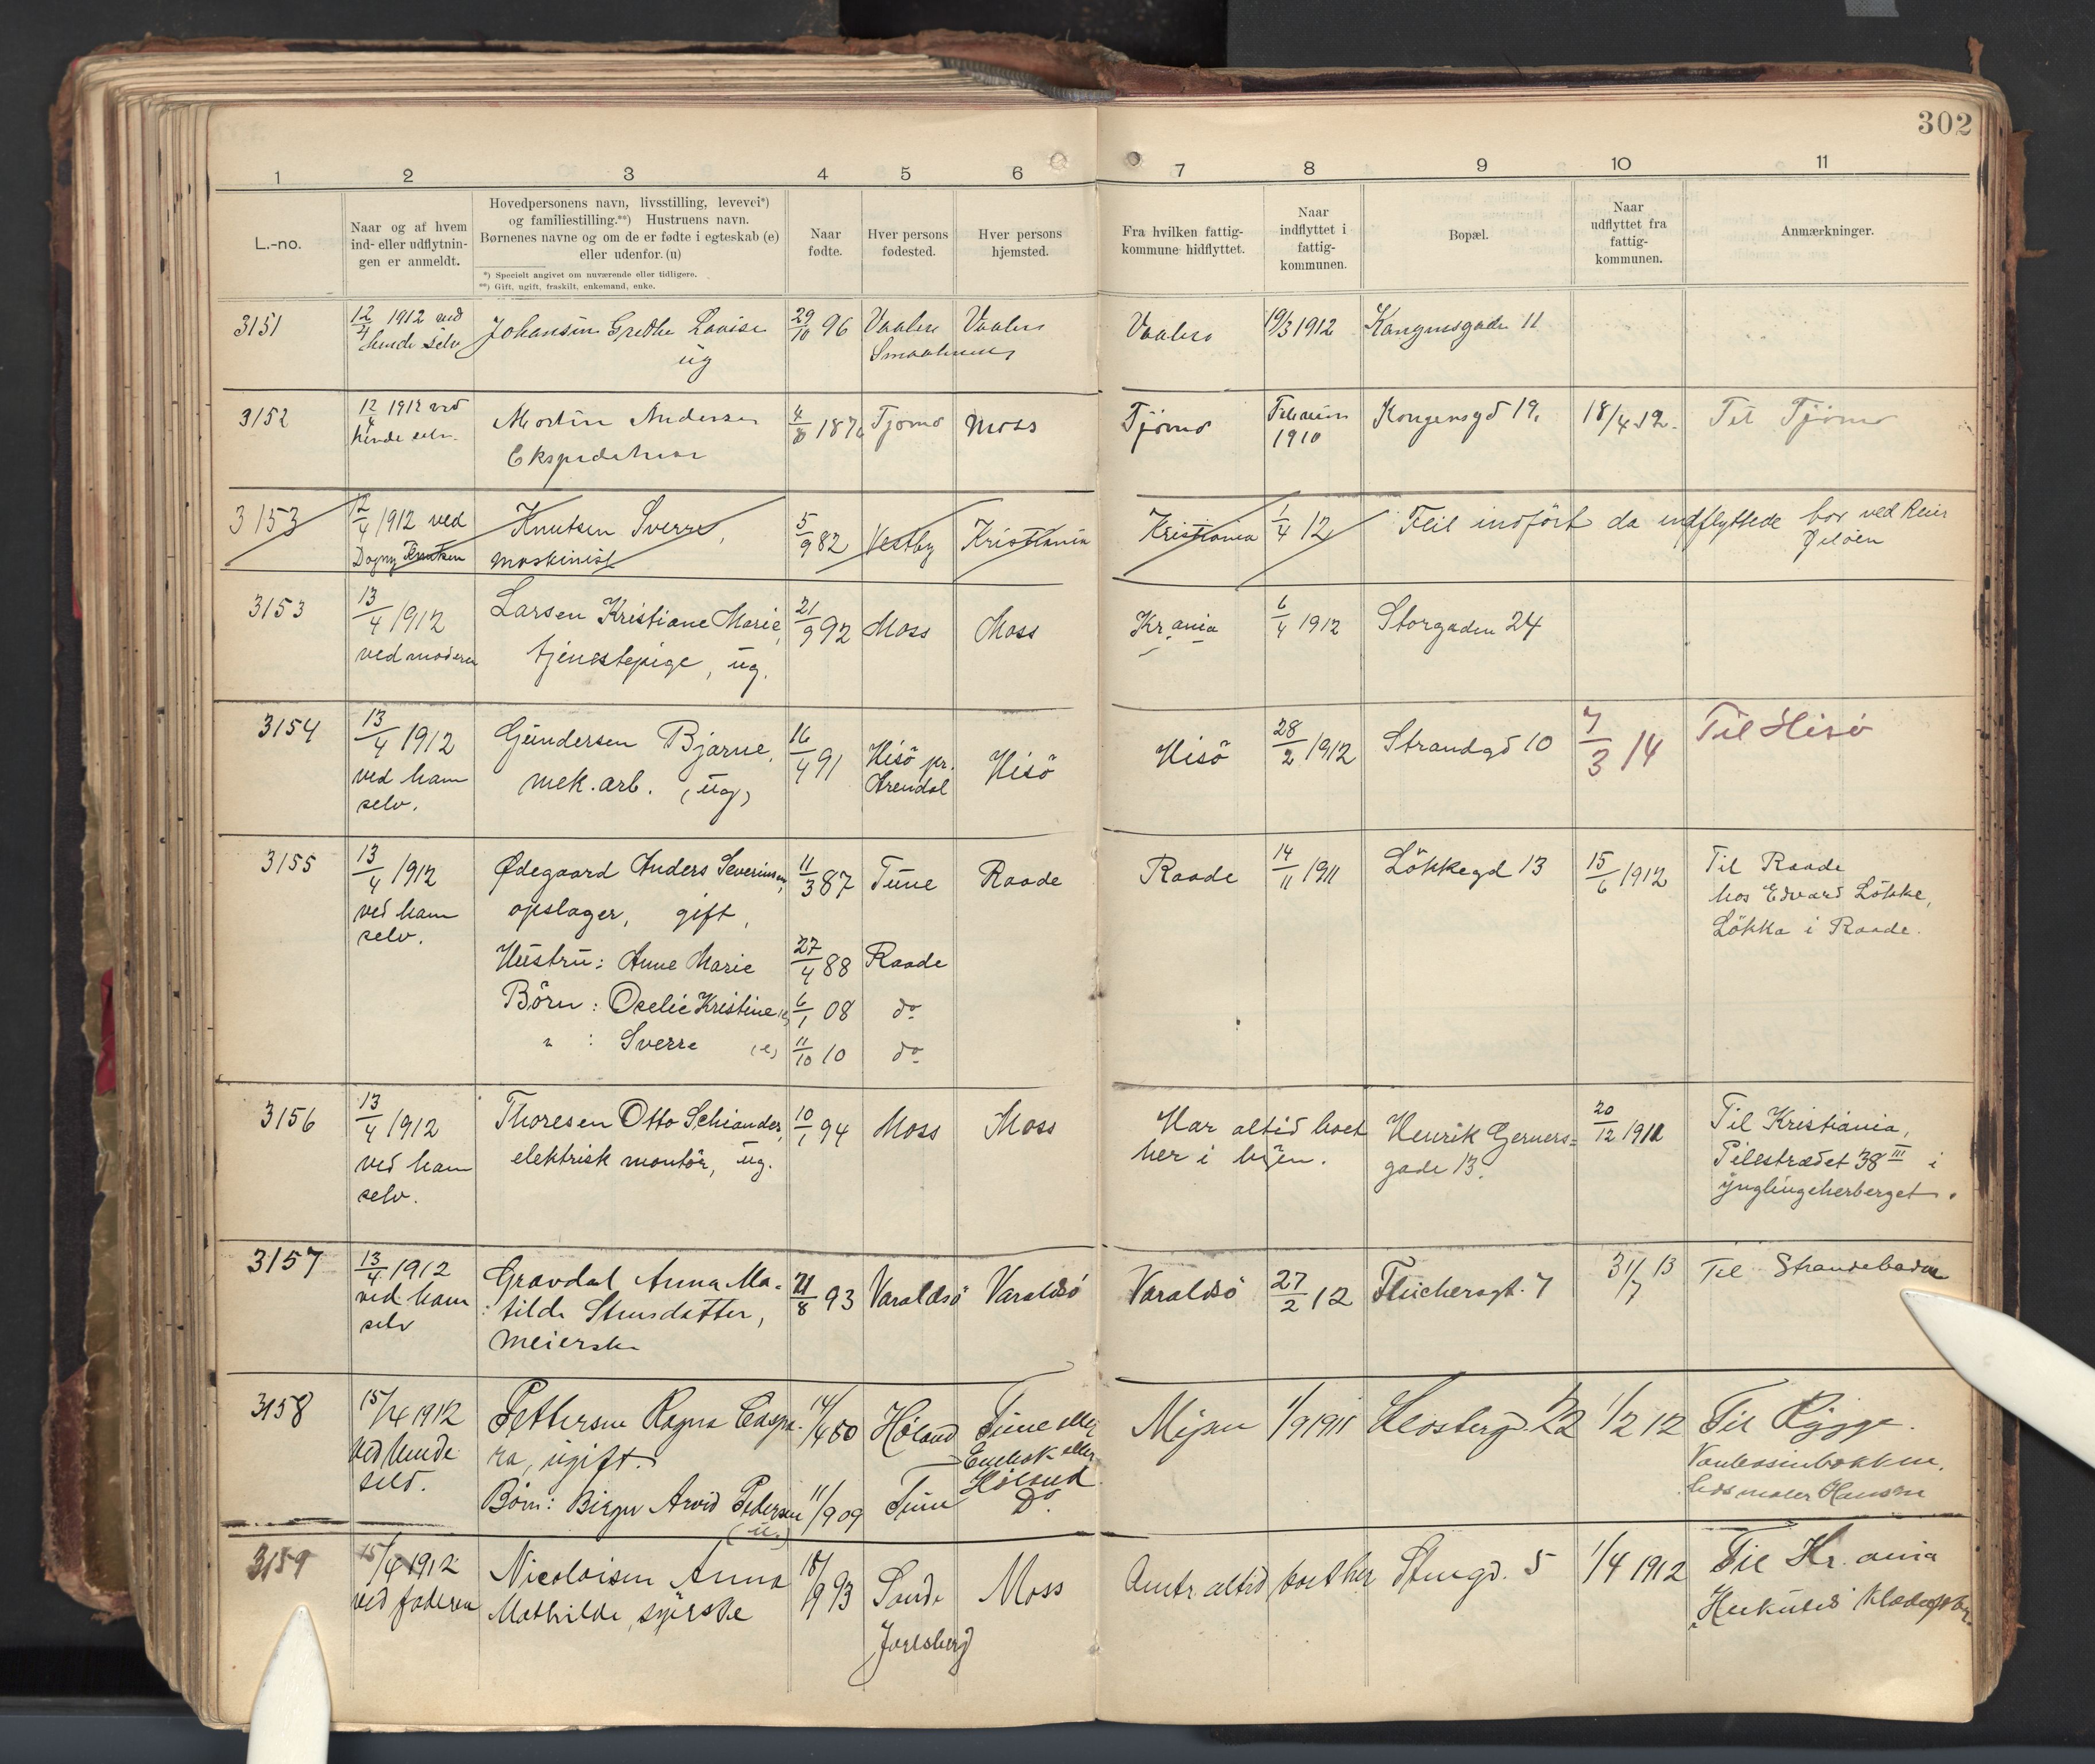 302
1 2 3 4 5 6 7 8 9 10 11
L.-no.
Naar og af hvem
ind- eller udflytnin-
gen er anmeldt.
Hovedpersonens navn, livsstilling, levevei*)
og familiestilling.**) Hustruens navn.
Børnenes navne og om de er fødte i egteskab (e)
eller udenfor. (u)
*) Specielt angivet om nuværende eller tidligere.
**) Gift, ugift, fraskilt, enkemand, enke.
Naar
fødte.
Hver persons
fødested.
Hver persons
hjemsted.
Fra hvilken fattig-
kommune hidflyttet.
Naar
indflyttet i
fattig-
kommunen.
Bopæl.
Naar
udflyttet fra
fattig-
kommunen.
Anmærkninger.
3151
12/4 1912 ved
hende selv
Johansen Grethe Lovise
ug
29/10 96
Vaaler
Smaalenene
Vaaler
Vaaler
19/3 1912
Kongensgade 11
3152
12/4 1912 ved
hende selv.
Martine Andersen
Ekspeditrise
4/8 1876
Tjømø
Moss
Tjømø
1910
Kongensgd 19.
18/4 12.
Til Tjømø
3153
12/4 1912 ved
Dagny Knutsen
Knutsen Sverre,
maskinist
5/9 82
Vestby
Kristiania
Kristiania
1/4 12
Feil indført da indflyttede bor ved Reier
Jeløen
3153
13/4 1912
ved moderen
Larsen Kristiane Marie,
tjenestepige, ug.
21/9 92
Moss
Moss
Kr.ania
6/4 1912
Storgaden 24
3154
13/4 1912
ved ham
selv.
Gundersen Bjarne,
mek. arb. (ug)
16/4 91
Hisö pr.
Arendal
Hisö
Hisö
28/2 1912
Strandgd 10
7/3 14
Til Hisø
3155
13/4 1912
ved ham
selv.
Ødegaard Anders Severinsen,
opslager, gift,
Hustru: Anne Marie
Börn: Oselie Kristine (e)
" : Sverre (e)
11/3 87
27/4 88
6/1 08
11/10 10
Tune
Raade
do
do
Raade
Raade
14/11 1911
Lökkegd 13
15/6 1912
Til Raade
hos Edvard Lökke,
Lökka i Raade.
3156
13/4 1912
ved ham
selv.
Thoresen Otto Schiander,
elektrisk montör, ug.
10/1 94
Moss
Moss
Har altid boet
her i byen.
Henrik Gerners=
gade 13.
20/12 1912
Til Kristiania,
Pilestrædet 38 III i
ynglingeherberget.
3157
13/4 1912
ved ham
selv
Gravdal Anna Ma-
tilde Stensdatter,
meierske
21/8 93
Varaldsö
Varaldsö
Varaldsö
27/2 12
Fleischersgt. 7
31/7 13
Til Strandebarm
3158
15/4 1912
ved hende
selv.
Pettersen Ragna Caspa-
ra, ugift.
Børn: Birger Arvid Pedersen
(u.)
14/4 80
11/9 09
Høland
Tune
Tune eller
Enebak eller
Høland
Do.
Mysen
1/9 1911
Klosterg. 22
1/2 12
Til Rygge.
hos maler Hansen
3159
15/4 1912
ved faderen
Nicolaisen Anna
Mathilde, syerske
18/9 93
Sande
Jarlsberg
Moss
Omtr. altid boet her
Steng. 5
1/4 1912
Til Kr.ania